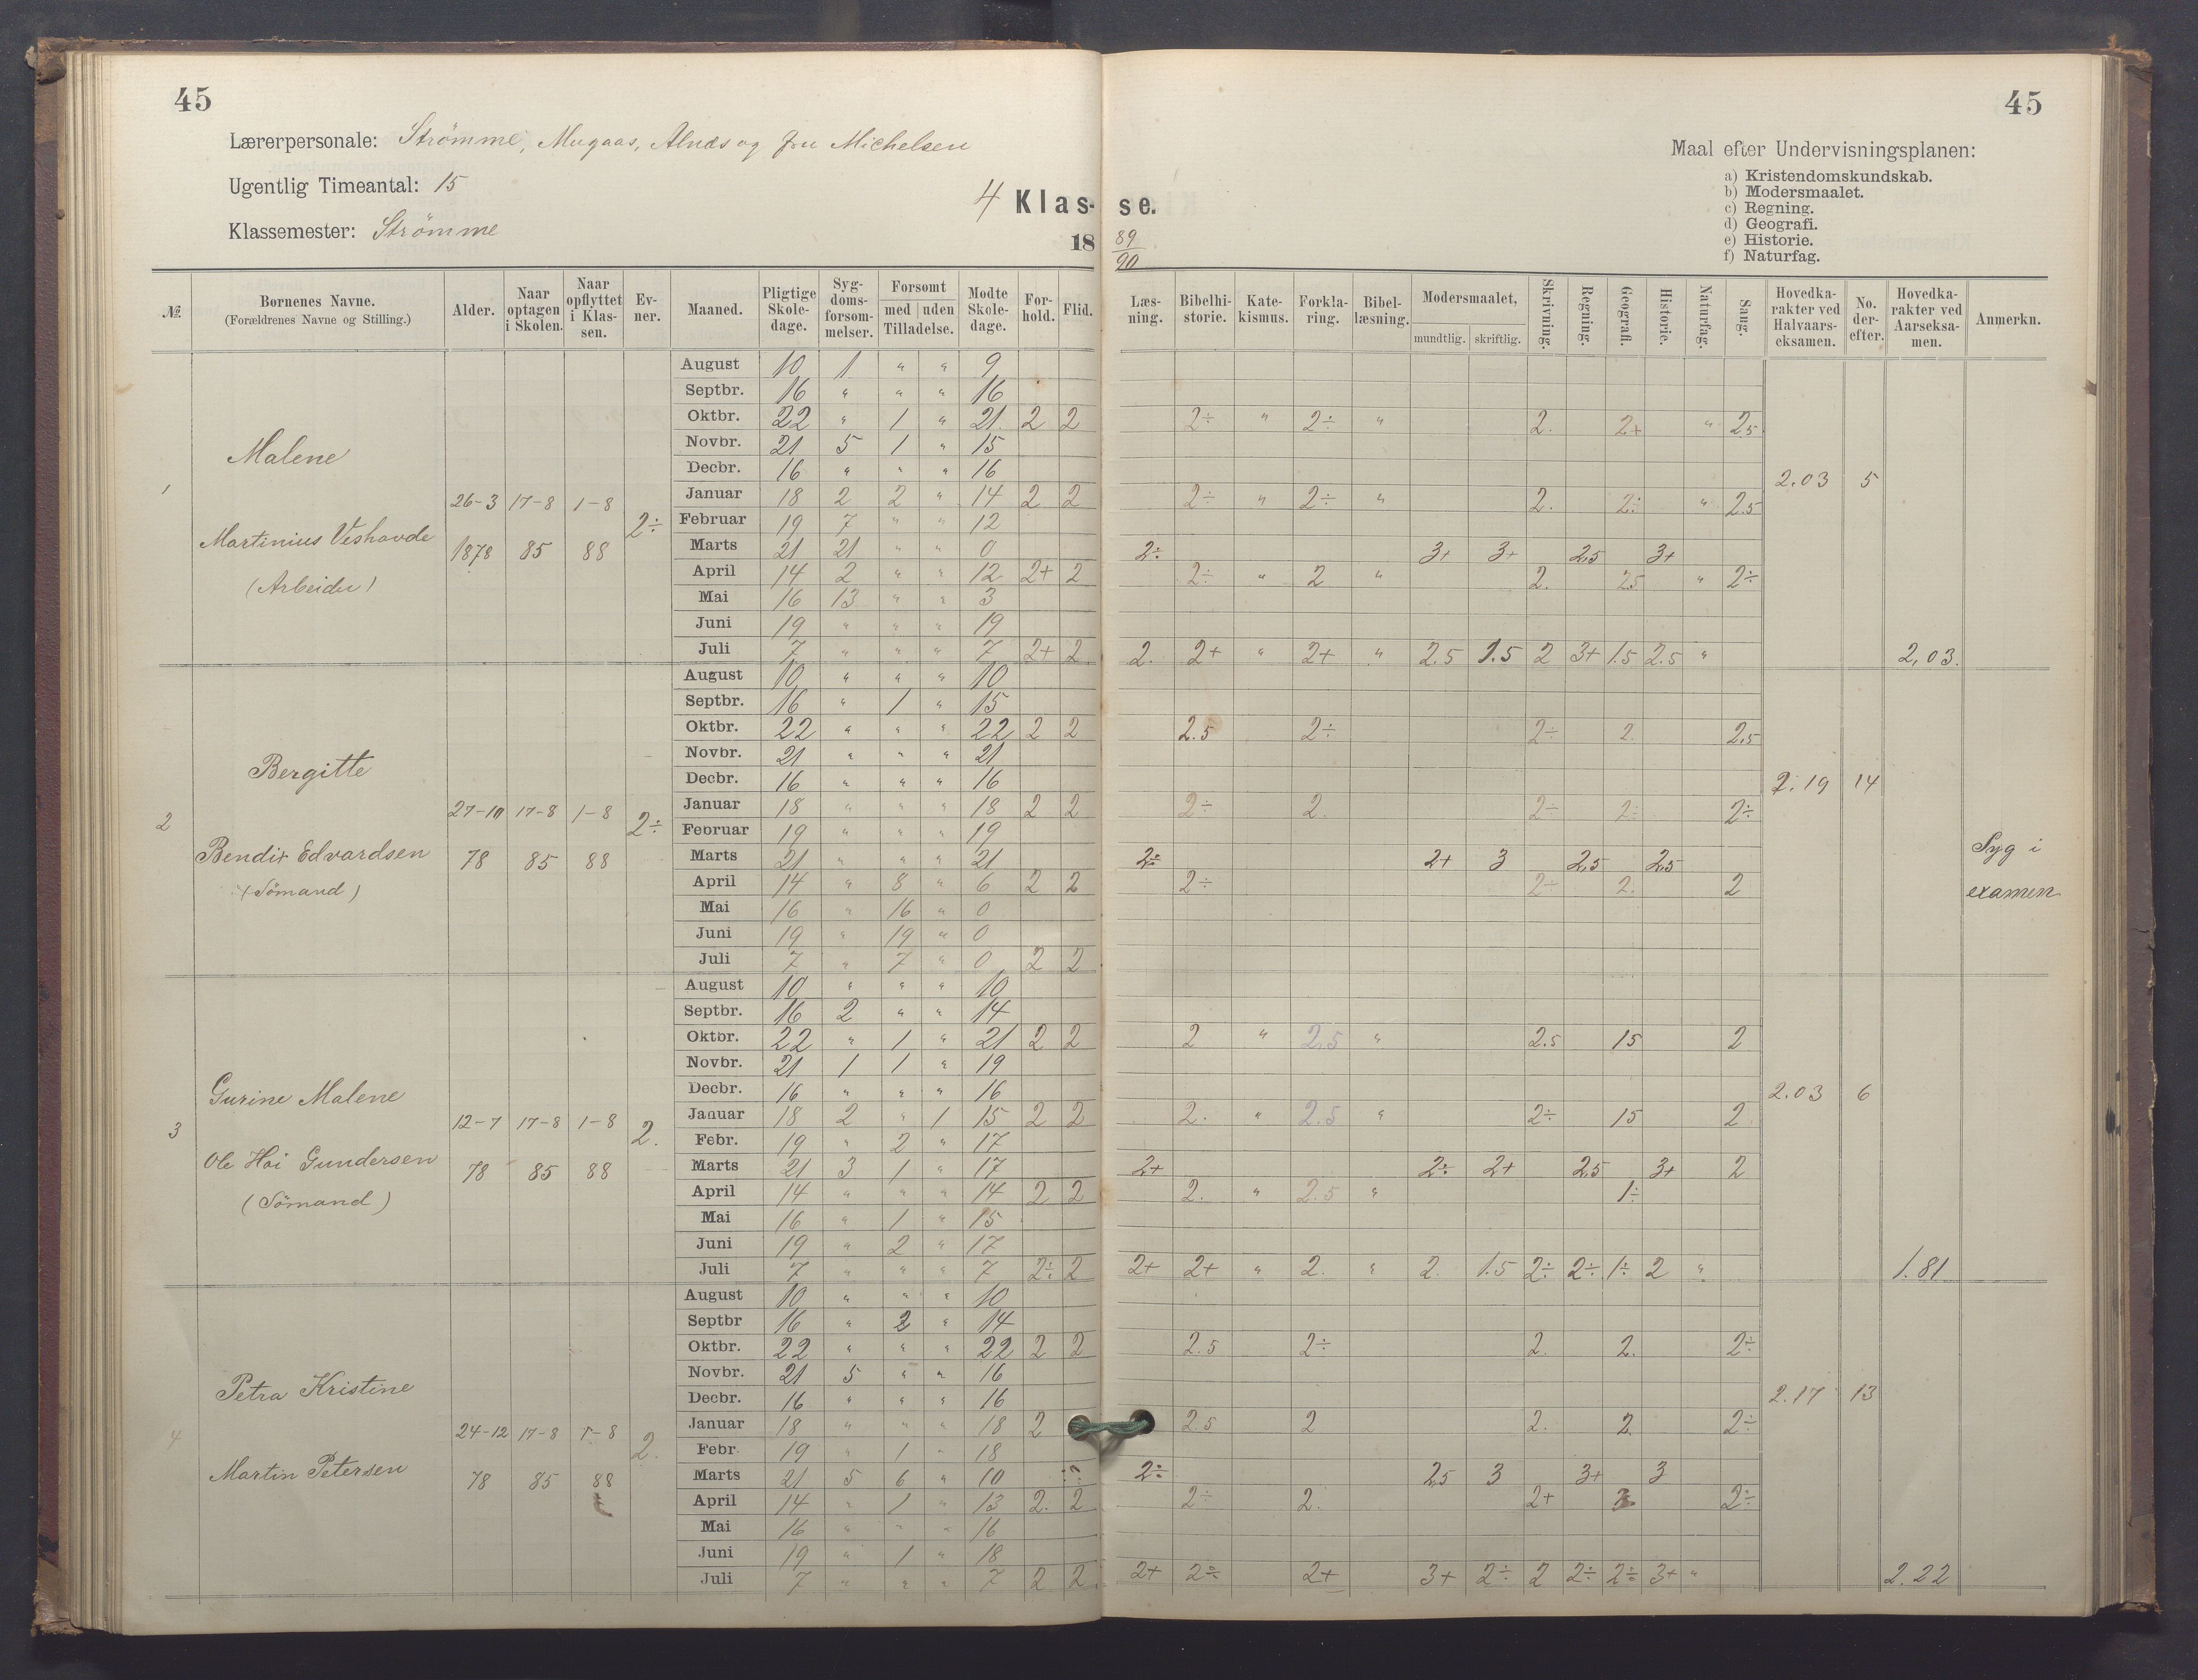 45
45
Lærerpersonale: Strömme, Mugaas, Alnæs og fru Michelsen
Ugentlig Timeantal: 15
Klassemester: Strömme
4 Klas- se.
18 89/90
Maal efter Undervisningsplanen:
a) Kristendomskundskab.
b) Modersmaalet.
c) Regning.
d) Geografi.
e) Historie.
f) Naturfag.
№. Børnenes Navne. (Forældrenes Navne og Stilling.) Alder. Naar optagen i Skolen. Naar opflyttet i Klassen. Evner. Maaned. Pligtige Skoledage. Sygdomsforsømmelser. Forsømt med uden Tilladelse. Mødte Skoledage. Forhold. Flid. Læsning. Bibelhistorie. Katekismus. Forklaring. Bibellæsning. Modersmaalet, mundtlig. skriftlig. Skrivning. Regning. Geografi. Historie. Naturfag. Sang. Hovedkarakter ved Halvaarseksamen. No. derefter. Hovedkarakter ved Aarseksamen. Anmerkn.
1 Malene
Martinius Vishovde
(Arbeider)
26-3 1878 17-8 85 1-8 88 2÷
August 10 1 " " 9
Septbr. 16 " " " 16
Oktbr. 22 " 1 " 21 2 2 2÷ " 2÷ " 2. 2+ " 2.5
Novbr. 21 5 1 " 15
Decbr. 16 " " " 16 2.03 5
Januar 18 2 2 " 14 2 2 2÷ " 2÷ " 2. 2÷ " 2.5
Februar 19 7 " " 12
Marts 21 21 " " 0 2÷ 3+ 3+ 2,5 3+
April 14 2 " " 12 2+ 2 2÷ " 2 " 2. 25 " 2÷
Mai 16 13 " " 3
Juni 19 " " " 19
Juli 7 " " " 7 2+ 2 2. 2+ " 2+ " 2.5 1.5 2 3+ 1.5 2.5 " 2,03.
2 Bergitte
Bendix Edvardsen
(Sömand)
27-10 78 17-8 85 1-8 88 2÷
August 10 " " " 10
Septbr. 16 " 1 " 15
Oktbr. 22 " " " 22 2 2 2.5 2÷ 2÷ 2. 2.5
Novbr. 21 " " " 21
Decbr. 16 " " " 16 2.19 14
Januar 18 " " " 18 2 2 2÷ 2. 2÷ 2÷ 2÷
Februar 19 " " " 19
Marts 21 " " " 21 2÷ 2+ 3 2,5 2,5
April 14 " 8 " 6 2 2 2÷ 2÷ 2. 2
Mai 16 " 16 " 0
Juni 19 " 19 " 0
Juli 7 " 7 " 0 2 2
Syg i
examen
3 Gurine Malene
Ole Hoi Gundersen
(Sömand)
12-7 78 17-8 85 1-8 88 2.
August 10 " " " 10
Septbr. 16 2 " " 14
Oktbr. 22 " 1 " 21 2 2 2 " 2.5 " 2.5 15 2
Novbr. 21 1 1 " 19
Decbr. 16 " " " 16 2.03 6
Januar 18 2 " 1 15 2 2 2. " 2.5 " 2÷ 15 2
Febr. 19 " 2 " 17
Marts 21 3 1 " 17 2+ 2÷ 2+ 2,5 3+ 2
April 14 " " " 14 2 2 2. " 2.5 " 1÷
Mai 16 " 1 " 15
Juni 19 " 2 " 17
Juli 7 " " " 7 2÷ 2 2+ 2+ " 2. " 2. 1.5 2÷ 2÷ 1÷ 2 " 1.81
4 Petra Kristine
Martin Petersen
24-12 78 17-8 85 1-8 88 2.
August 10 " " " 10
Septbr 16 " 2 " 14
Oktbr. 22 " " " 22 2 2 2.5 2÷ 2. 2. 2÷
Novbr. 21 5 " " 16
Decbr. 16 " " " 16 2.17 13
Januar 18 " " " 18 2 2.5 2 2. 2. 2÷
Febr. 19 " 1 " 18
Marts 21 5 6 " 10 2÷ 2,5 3 3+ 3
April 14 " 1 " 13 2. 2 2÷ 2. 2+ 2÷
Mai 16 " " " 16
Juni 19 " 1 " 18
Juli 7 " " " 7 2 2. 2+ 2÷ 2+ 3+ 2÷ 2 2÷ 2÷ 3+ " 2.22